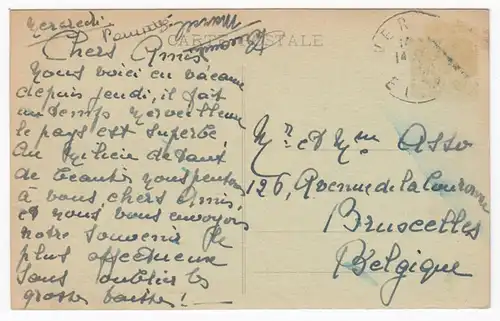 Mercredi
CARTE POSTALE
Chers Amis
Nous voici en vacance
depuis jeudi, il fait
un temps merveilleux
le pays est superbe
Au milieu de tant
de beautés nous pensons
à vous, chers Amis,
et nous vous envoyons
notre souvenir le
plus affectueux
sans oublier les
grosses baises!
Mr et Mme Asso
126, Avenue de la Couronne
Bruxcelles
Belgique